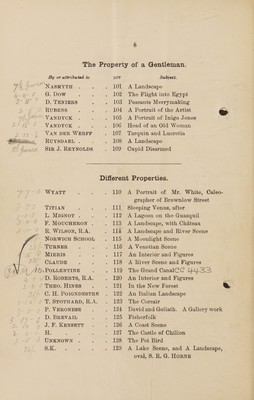 8
The Property of a Gentleman.
By or attributed to LOT Subject.
Nasmyth . . . 101 A Landscape
G. Dow . . . 102 The Flight into Egypt
D. Teniers . . . 103 Peasants Merrymaking
Rubens . . . 104 A Portrait of the Artist
Vandyck . . . 105 A Portrait of Inigo Jones
Vandyck . . . 106 Head of an Old Woman
Van der Werff . . . 107 Tarquin and Lucretia
Ruysdael . . . 108 A Landscape
Sir J. Reynolds . . . 109 Cupid Disarmed
Different Properties.
Wyatt . . . 110 A Portrait of Mr. White, Calcographer
of Brownlow Street
Titian . . . 111 Sleeping Venus, after
L. Mignot . . . 112 A Lagoon on the Guaquil
F. Moucheron . . . 113 A Landscape, with Château
R. Wilson, R.A. . . . 114 A Landscape and River Scene
Norwich School . . . 115 A Moonlight Scene
Turner . . . 116 A Venetian Scene
Mieris . . . 117 An Interior and Figures
Claude . . . 118 A River Scene and Figures
Pollentine . . . 119 The Grand Canal CC 4433
D. Roberts, R.A. . . . 120 An Interior and Figures
Theo. Hines . . . 121 In the New Forest
C. H. Poingdestre . . . 122 An Italian Landscape
T. Stothard, R.A. . . . 123 The Corsair
P. Veronese . . . 124 David and Goliath. A Gallery work
D. Brevail . . . 125 Fisherfolk
J. F. Kensett . . . 126 A Coast Scene
H. . . . 127 The Castle of Chillon
Unknown . . . 128 The Pet Bird
S.K. . . . 129 A Lake Scene, and A Landscape,
oval, S. E. G. Horne